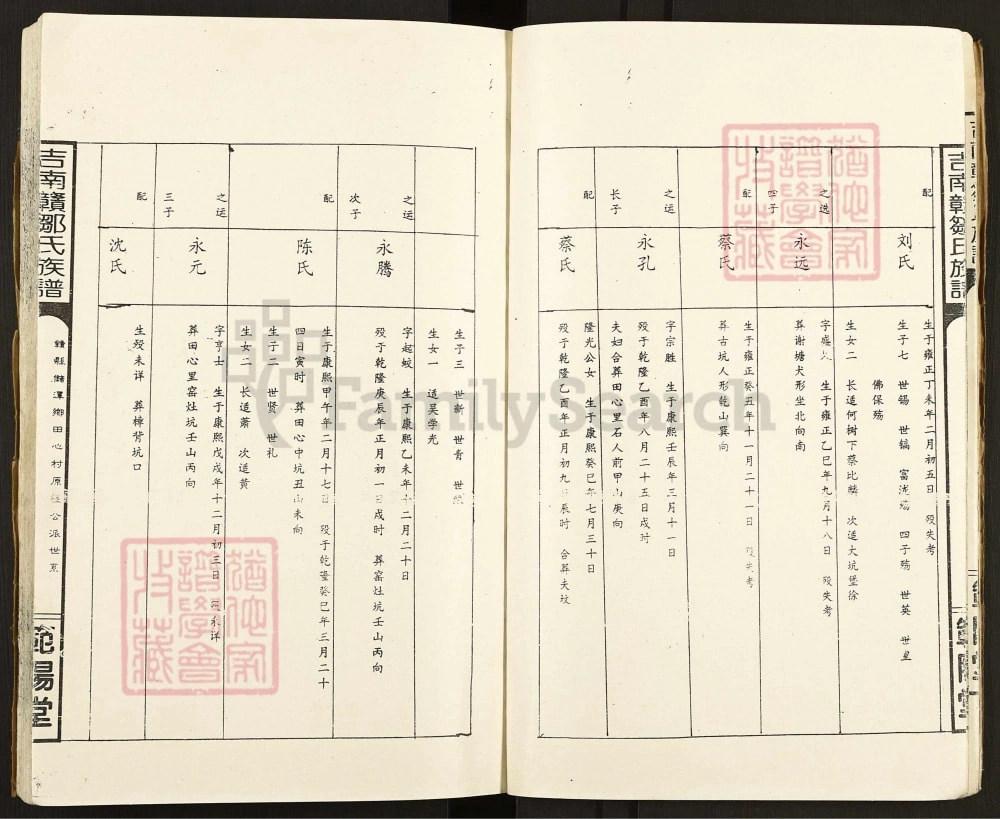 吉南贛鄒氏族譜
配
刘氏
生于雍正丁未年二月初五日 殁失考
生子七 世锡 世镐 富泷殇 四子殇 世英 世皇
佛保殇
生女二 长适何树下蔡比麟 次适大坑堡徐
之选
四子
永远
字盛 生于雍正乙巳年九月十八日 殁失考
葬谢塘犬形坐北向南
蔡氏
生于雍正癸丑年十一月二十一日 殁失考
葬古坑人形乾山巽向
之运
长子
永孔
字宗胜 生于康熙壬辰年三月十一日
殁于乾隆乙酉年八月二十五日戌时
夫妇合葬田心里石人前甲山庚向
配
蔡氏
隆光公女 生于康熙癸巳年七月三十日
殁于乾隆乙酉年正月初九 辰时 合葬夫坟
生子三 世新 世青 世
生女一 适吴学光
之运
次子
永腾
字起蛟 生于康熙乙未年十二月二十日
殁于乾隆庚辰年正月初一日戌时 葬窑灶坑壬山丙向
配
陈氏
生于康熙甲午年二月十七日 殁于乾隆癸巳年三月二十
四日寅时 葬田心中坑丑山未向
生子二 世贤 世礼
生女二 长适萧 次适黄
之运
三子
永元
字亨士 生于康熙戊戌年十二月初三日 殁未详
葬田心里窑灶坑壬山丙向
配
沈氏
生殁未详 葬樟背坑口
吉南贛鄒氏族譜
贛縣儲潭鄉田心村原 公派世系
範陽堂